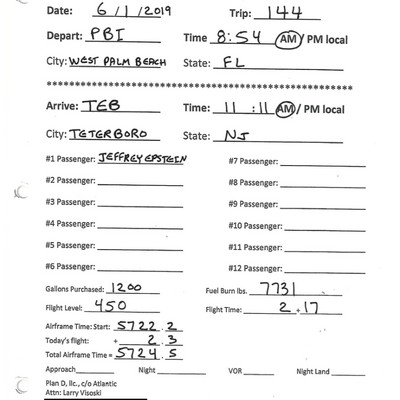 Date: 6/1/2019 Trip: 144
Depart: PBI Time 8:54 AM / PM local
City: WEST PALM BEACH State: FL
****************************************************
Arrive: TEB Time: 11:11 AM/ PM local
City: TETERBORO State: NJ
#1 Passenger: JEFFREY EPSTEIN #7 Passenger:
#2 Passenger: #8 Passenger:
#3 Passenger: #9 Passenger:
#4 Passenger: #10 Passenger:
#5 Passenger: #11 Passenger:
#6 Passenger: #12 Passenger:
Gallons Purchased: 1200 Fuel Burn lbs. 7731
Flight Level: 450 Flight Time: 2+17
Airframe Time: Start: 5722.2
Today's flight: + 2.3
Total Airframe Time = 5724.5
Approach Night VOR Night Land
Plan D, llc., c/o Atlantic
Attn: Larry Visoski